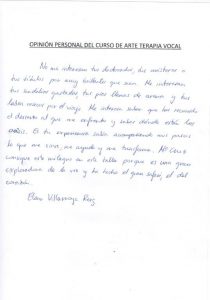 OPINIÓN PERSONAL DEL CURSO DE ARTE TERAPIA VOCAL
No me interesan tus doctorados, tus masters o
tus títulos por muy brillantes que sean. Me interesan
tus sandalias gastadas, tus pies llenos de arena y tus
labios secos por el viaje. Me interesa saber que has recorrido
el desierto al que me enfrento y sabes dónde están los
oasis. Es tu experiencia sabia acompañando mis pasos
lo que me sirve, me ayuda y me transforma. Mª Cruz
consigue este milagro en este taller porque es una gran
exploradora de la voz y ha hecho el gran safari, el del
corazón.
Elena Villarroya Ruiz